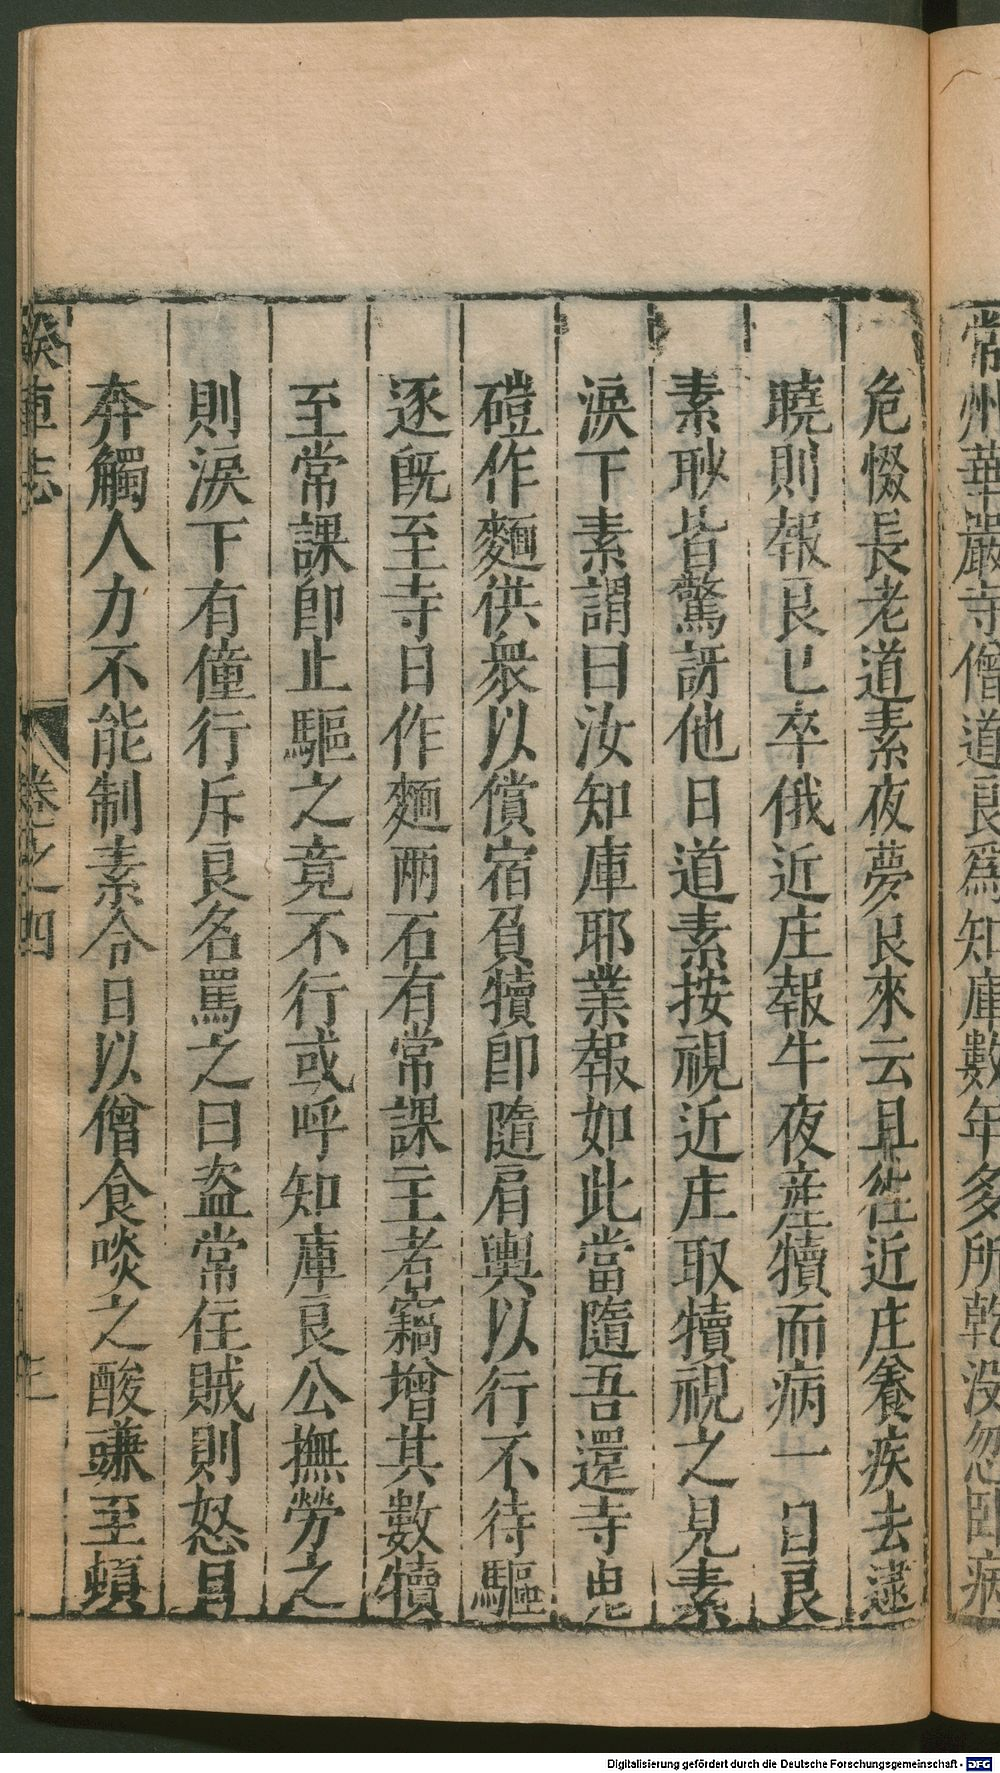 常州華嚴寺僧道良爲知庫數年多所乾没忽臥病
危惙長老道素夜夢良來云且往近庄養疾去逮
曉則報良已卒俄近庄報牛夜産犢而病一目良
素耿皆驚訝他日道素按視近庄取犢視之見素
淚下素謂曰汝知庫耶業報如此當隨吾還寺曳
磑作麵供衆以償宿負犢即隨肩輿以行不待驅
逐旣至寺日作麵兩石有常課主者竊增其數犢
至常課即止驅之竟不行或呼知庫良公撫勞之
則淚下有僮行斥良名罵之曰盗常住賊則怒目
奔觸人力不能制素令日以僧食啖之酸豏至頓
睽車志
卷之四
Digitalisierung gefördert durch die Deutsche Forschungsgemeinschaft - DFG